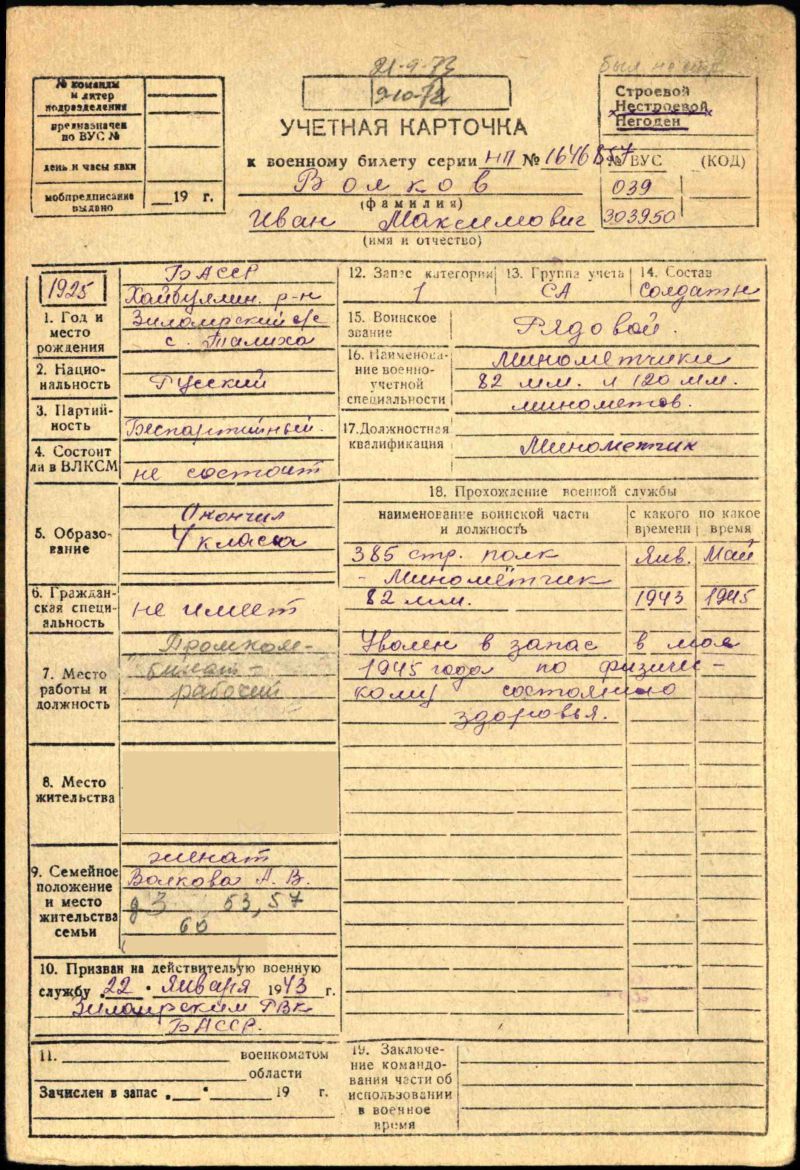 21-9-73
9-10-72
был на
№ команды
и литер
подразделения
предназначен
по ВУС №
день и часы явки
мобпредписание
выдано
19 г.
Строевой
Нестроевой
Негоден
УЧЕТНАЯ КАРТОЧКА
к военному билету серии НП № 1646857
№ ВУС (КОД)
039
303950
Волков
(фамилия)
Иван Максимович
(имя и отчество)
1925
1. Год и
место
рождения
БАССР
Хайбуллин. р-н
Зилаирский с/с
с. Талиха
2. Нацио-
нальность
Русский
3. Партий-
ность
Беспартийный.
4. Состоит
ли в ВЛКСМ
не состоит
5. Образо-
вание
Окончил
4 класса
6. Граждан-
ская специ-
альность
не имеет
7. Место
работы и
должность
Промком-
бинат-
рабочий
8. Место
жительства
9. Семейное
положение
и место
жительства
семьи
женат
Волкова А. В.
д 3 53, 57
60
10. Призван на действительную военную
службу „22" Января 1943 г.
Зилаирским РВК
БАССР.
11. военкоматом
области
Зачислен в запас „ " 19 г.
12. Запас категории
1
13. Группа учета
СА
14. Состав
Солдаты
15. Воинское
звание
Рядовой.
16. Наименова-
ние военно-
учетной
специальности
Минометчики
82 мм. и 120 мм.
минометов.
17. Должностная
квалификация
Минометчик
18. Прохождение военной службы
наименование воинской части
и должность
с какого
времени
по какое
время
385 стр. полк Янв. Май
- Миномётчик
82 мм. 1943 1945
Уволен в запас в мае
1945 года по физичес-
кому состоянию
здоровья.
19. Заключе-
ние командо-
вания части об
использовании
в военное
время